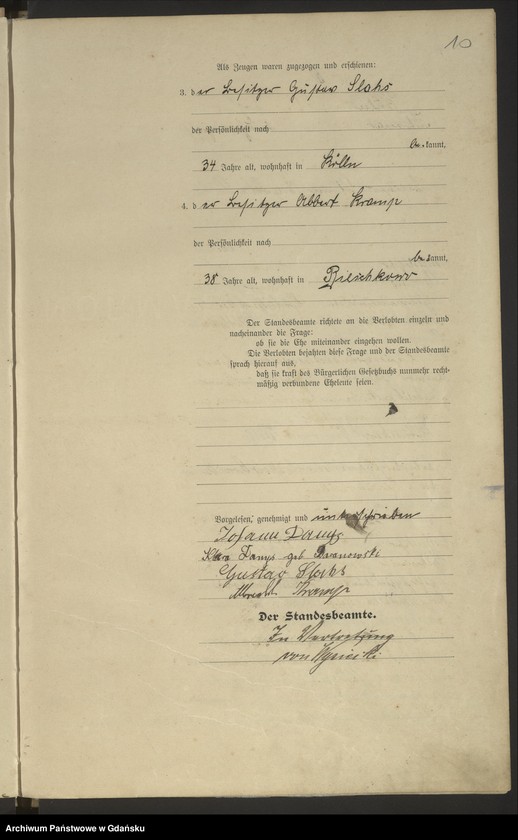 10
Als Zeugen waren zugezogen und erschienen:
3. d er Besitzer Gustav Slaks
der Persönlichkeit nach
be kannt,
34 Jahre alt, wohnhaft in Kölln
4. d er Besitzer Albert Kramp
der Persönlichkeit nach
be kannt,
38 Jahre alt, wohnhaft in Bieschkowo
Der Standesbeamte richtete an die Verlobten einzeln und
nacheinander die Frage:
ob sie die Ehe miteinander eingehen wollen.
Die Verlobten bejahten diese Frage und der Standesbeamte
sprach hierauf aus,
daß sie kraft des Bürgerlichen Gesetzbuchs nunmehr recht-
mäßig verbundene Eheleute seien.
Vorgelesen, genehmigt und unterschrieben
Johann
geb
Gustav Slaks
Kramp
Der Standesbeamte.
In Vertretung
von
Archiwum Państwowe w Gdańsku